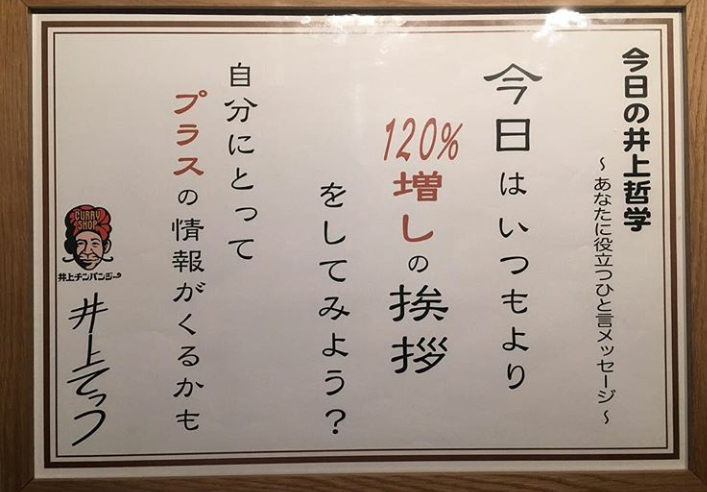 今日の井上哲学
～あなたに役立つひと言メッセージ～
今日はいつもより
120%増しの挨拶
をしてみよう？
自分にとって
プラスの情報がくるかも
CURRY
SHOP
井上チンパンジー
井上てつ